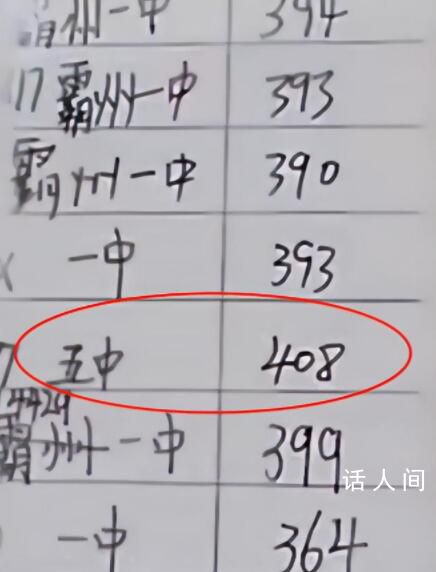 霸州一中 394
17 霸州一中 393
霸州一中 390
一中 393
7 五中 408
4429
霸州一中 399
话人间
一中 364